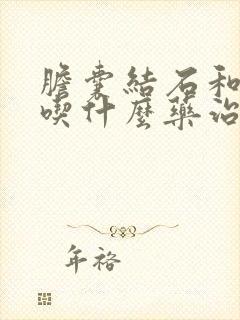 膽囊結石和
喫什麼藥治
年袼